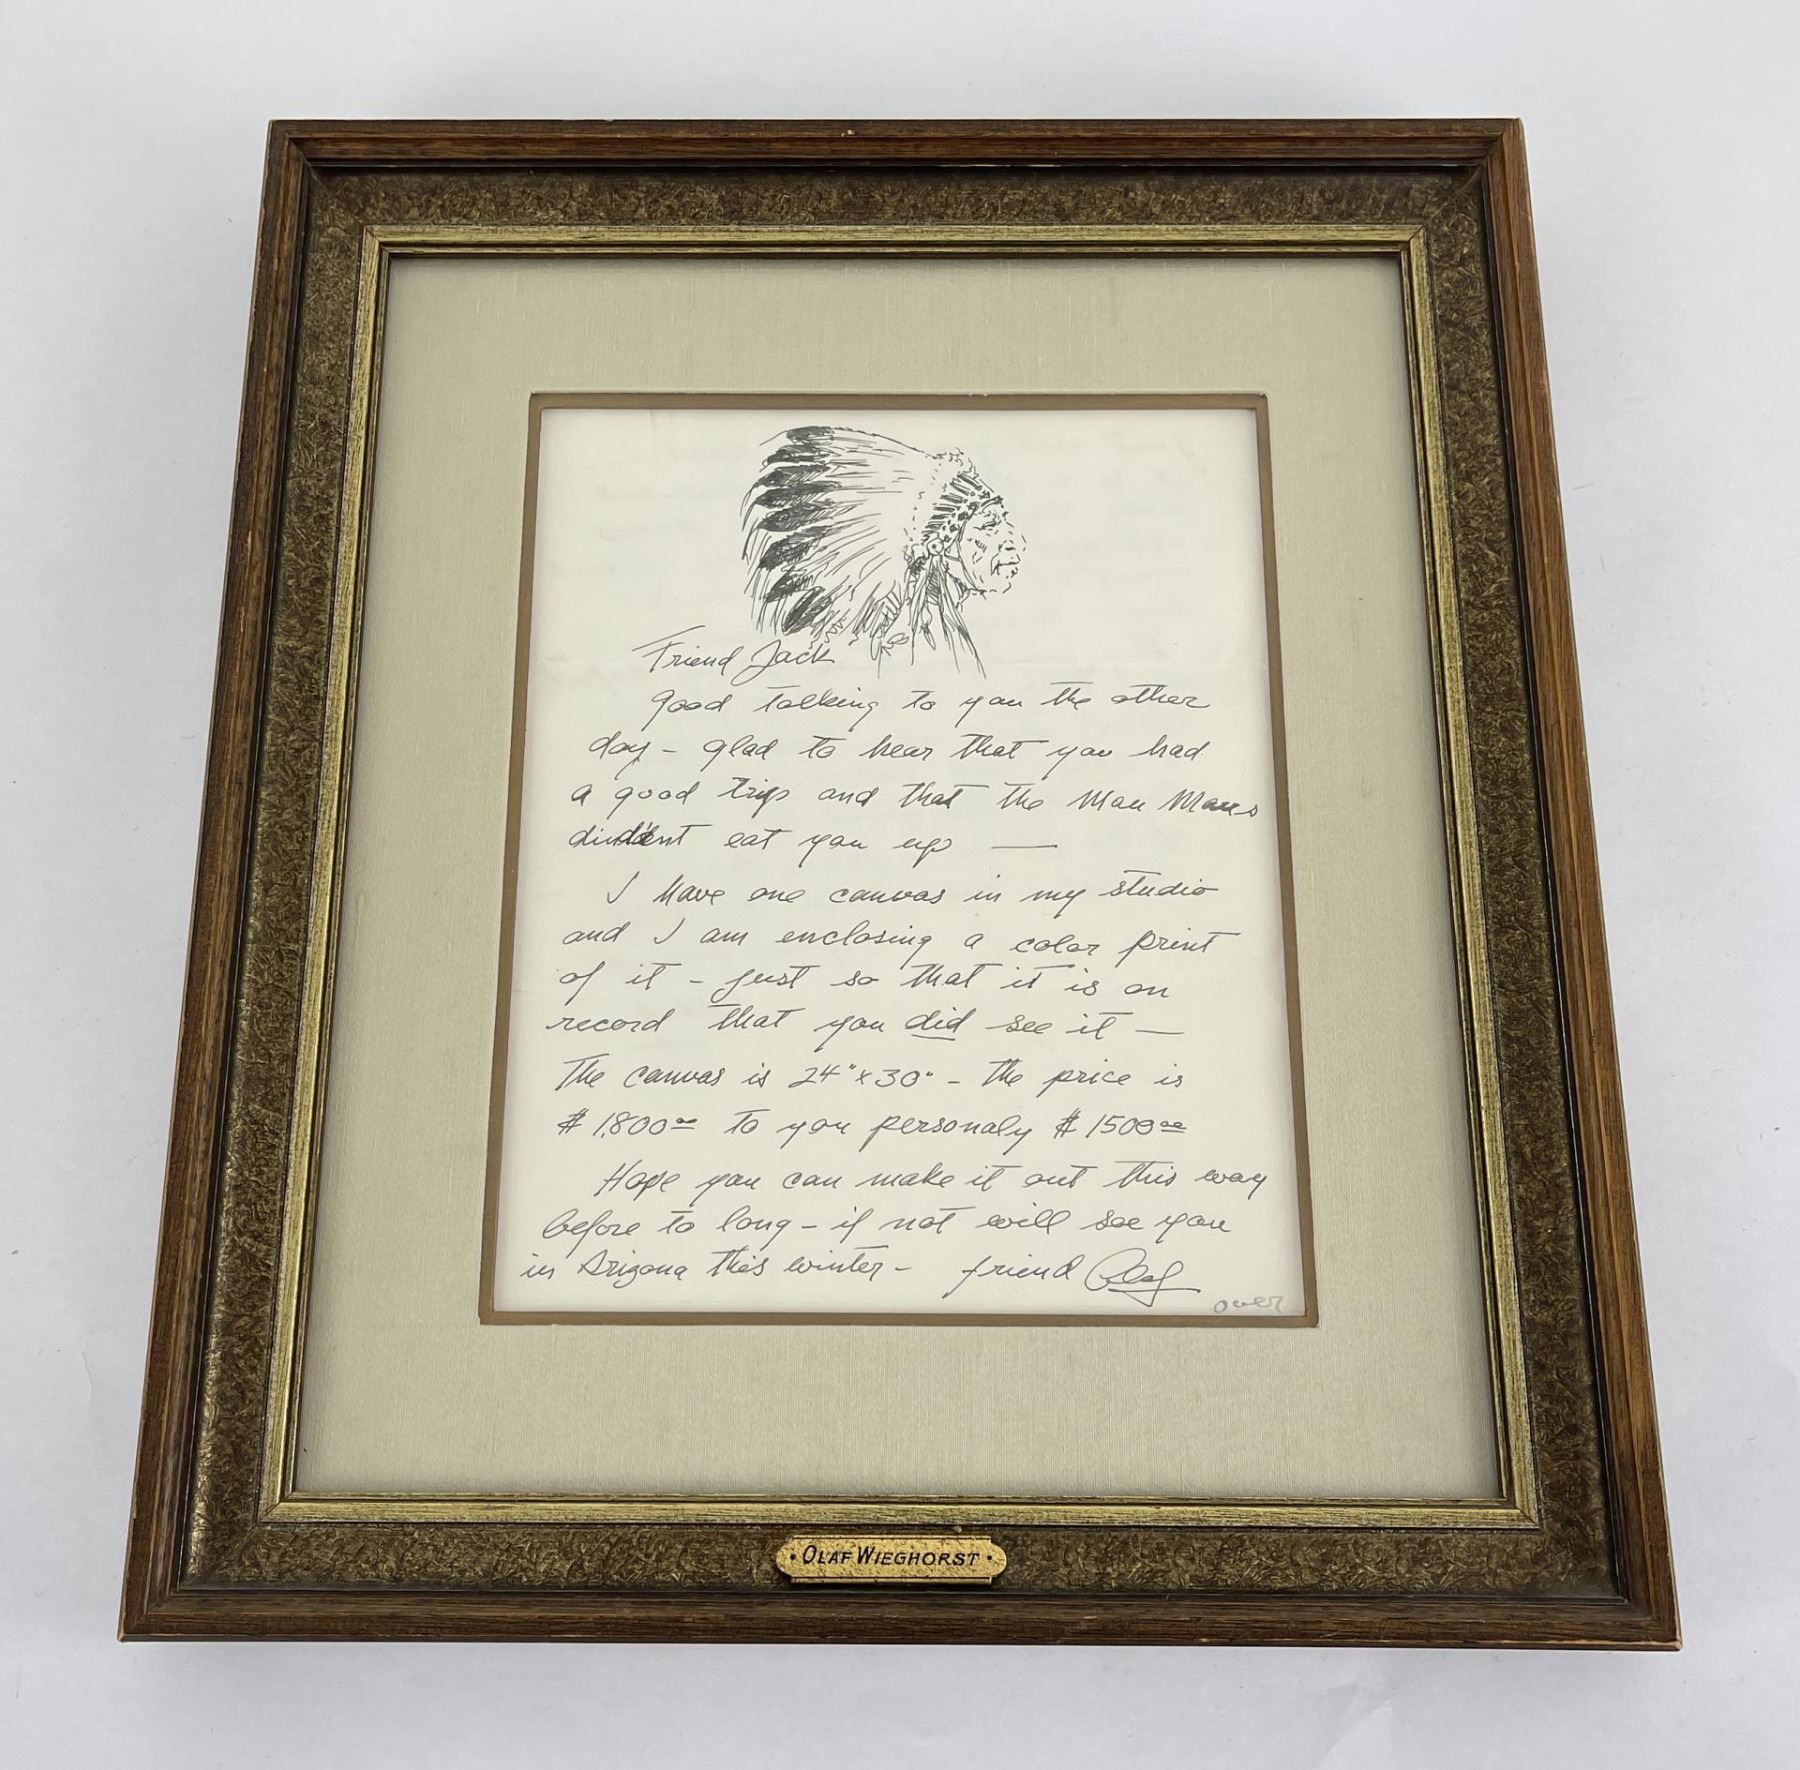 Friend Jack
good talking to you the other
day - glad to hear that you had
a good trip and that the Mau Maus
dident eat you up —
I have one canvas in my studio
and I am enclosing a color print
of it - just so that it is on
record that you did see it —
The canvas is 24" x 30" - the price is
$ 1,800.00 to you personaly $ 1500.00
Hope you can make it out this way
before to long - if not will see you
in Arizona this winter - friend Olaf
over
• OLAF WIEGHORST •